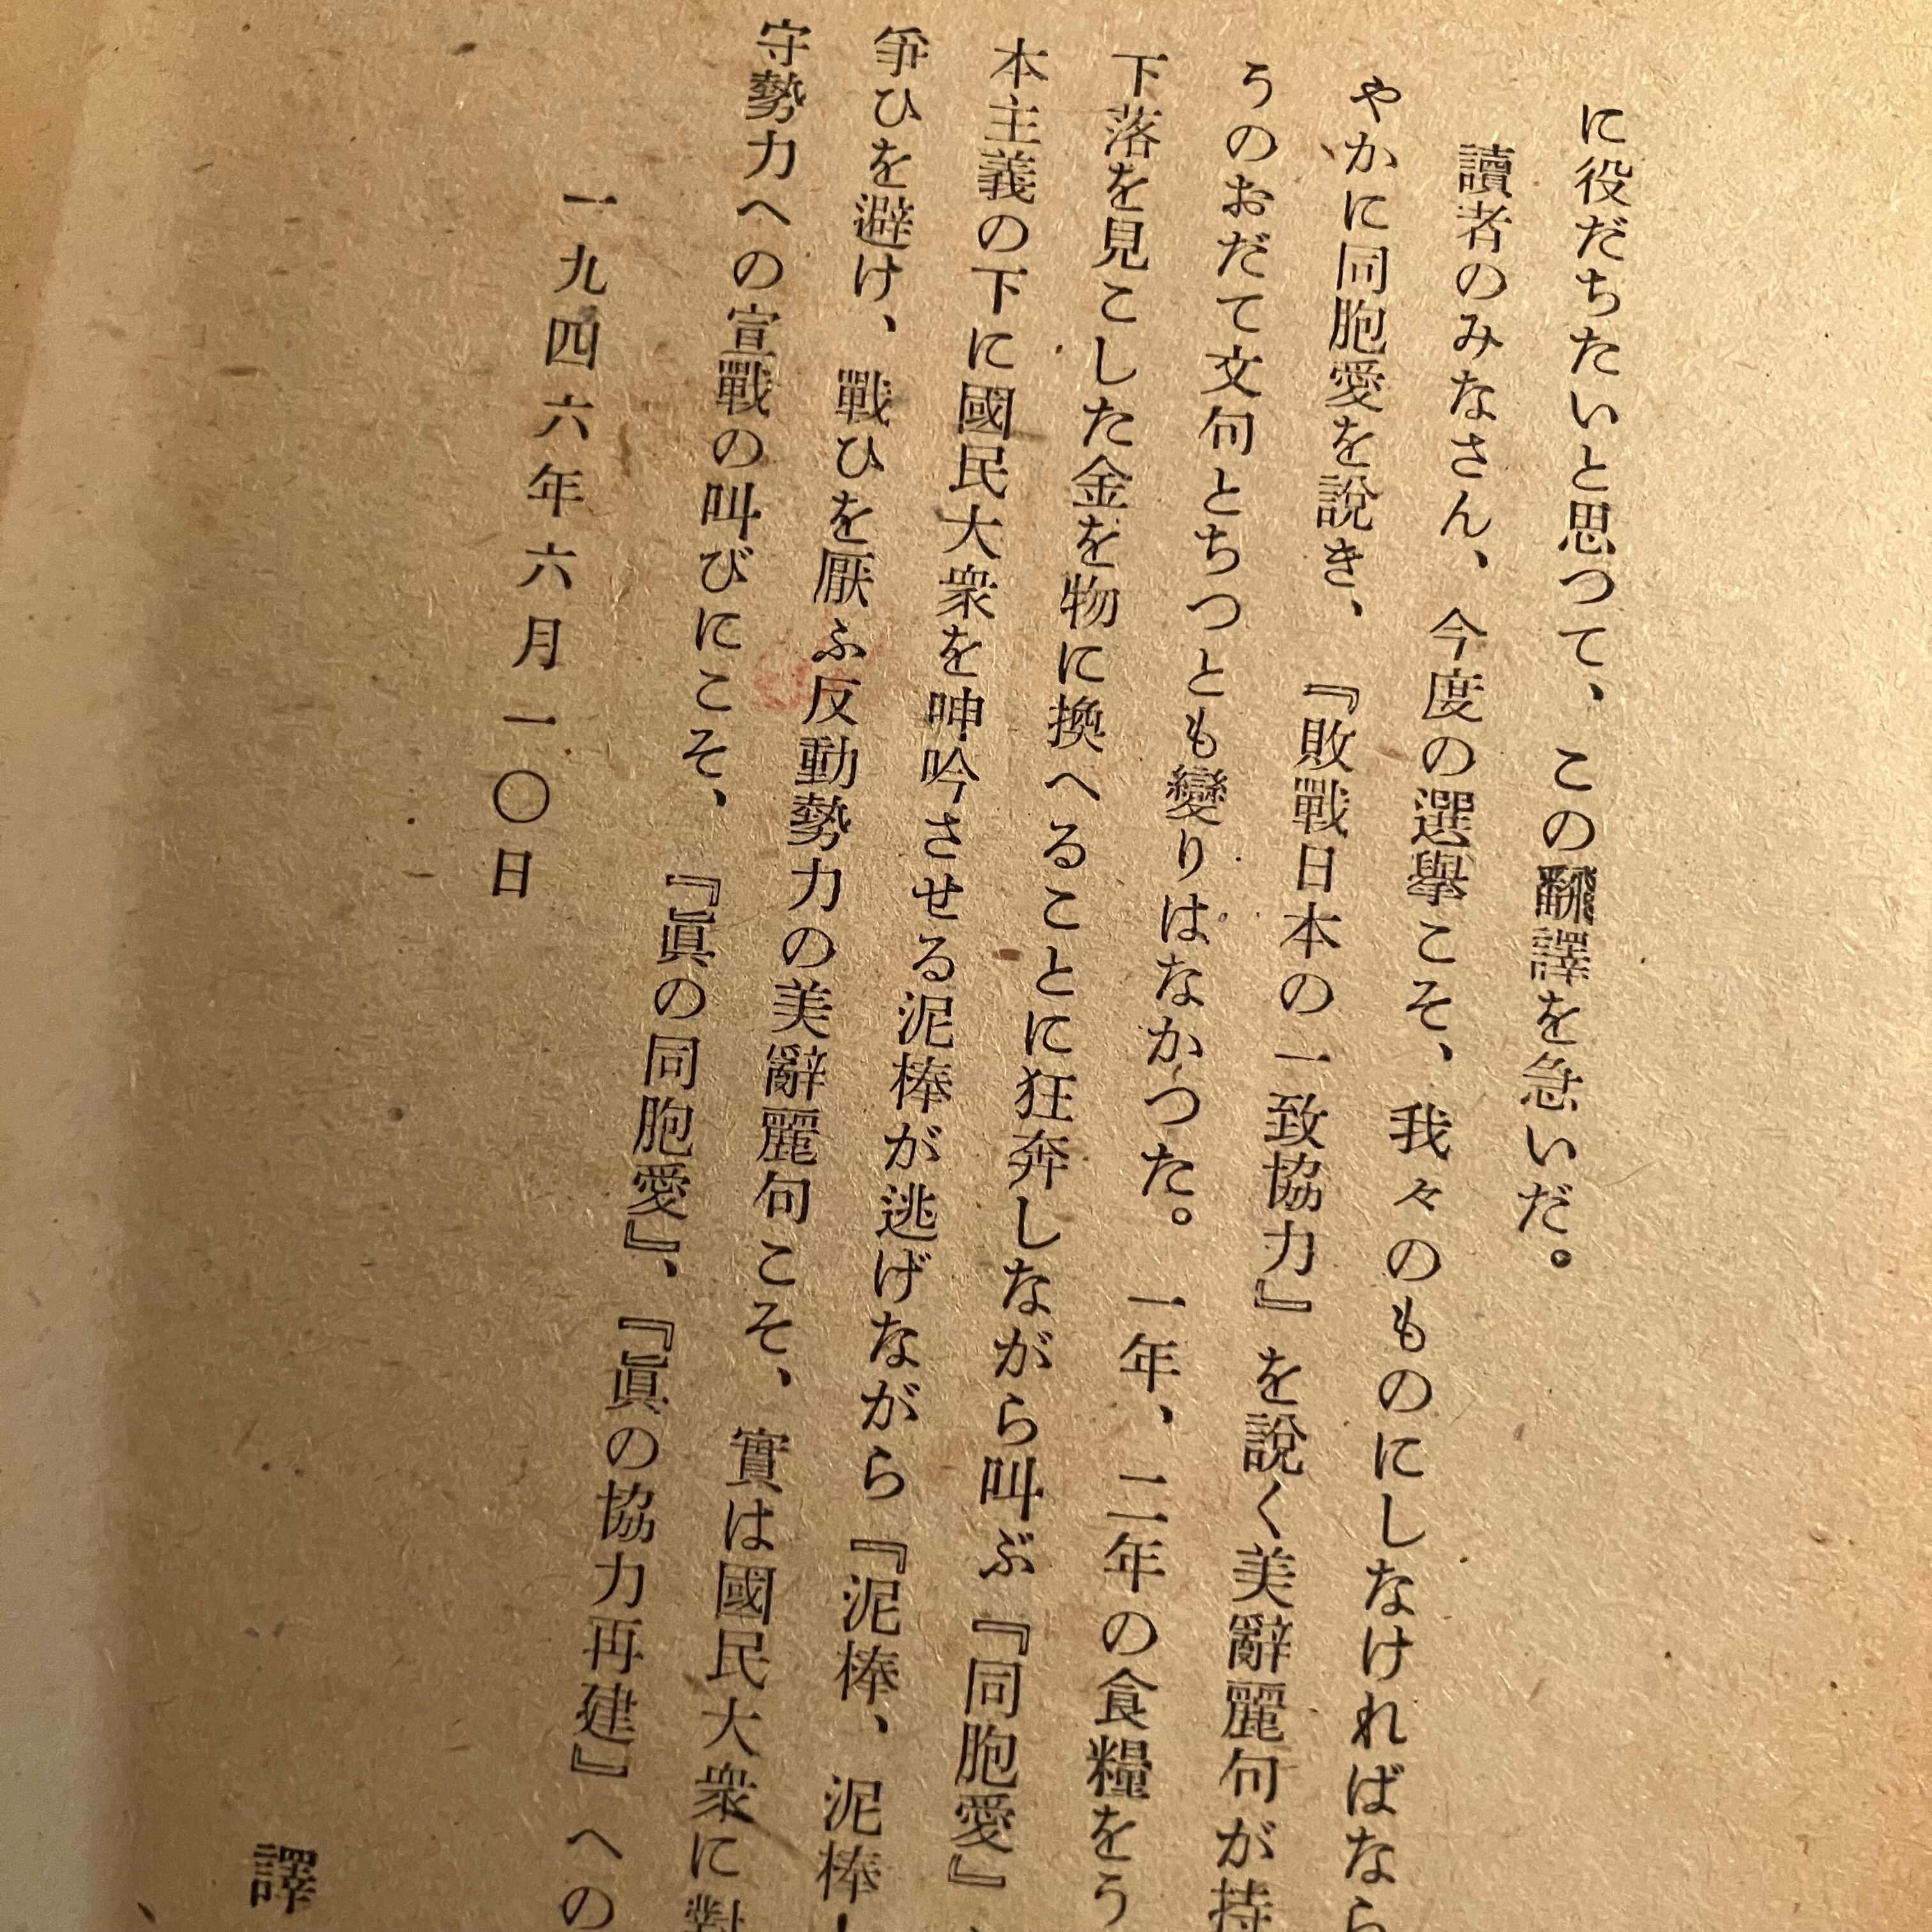 に役だちたいと思つて、この翻譯を急いだ。
讀者のみなさん、今度の選擧こそ、我々のものにしなければなら
やかに同胞愛を説き、『敗戰日本の一致協力』を説く美辭麗句が持
うのおだて文句とちつとも變りはなかつた。一年、二年の食糧をう
下落を見こした金を物に換へることに狂奔しながら叫ぶ『同胞愛』、
本主義の下に國民大衆を呻吟させる泥棒が逃げながら『泥棒、泥棒
爭ひを避け、戰ひを厭ふ反動勢力の美辭麗句こそ、實は國民大衆に對
守勢力への宣戰の叫びにこそ、『眞の同胞愛』、『眞の協力再建』への
一九四六年六月一〇日
譯